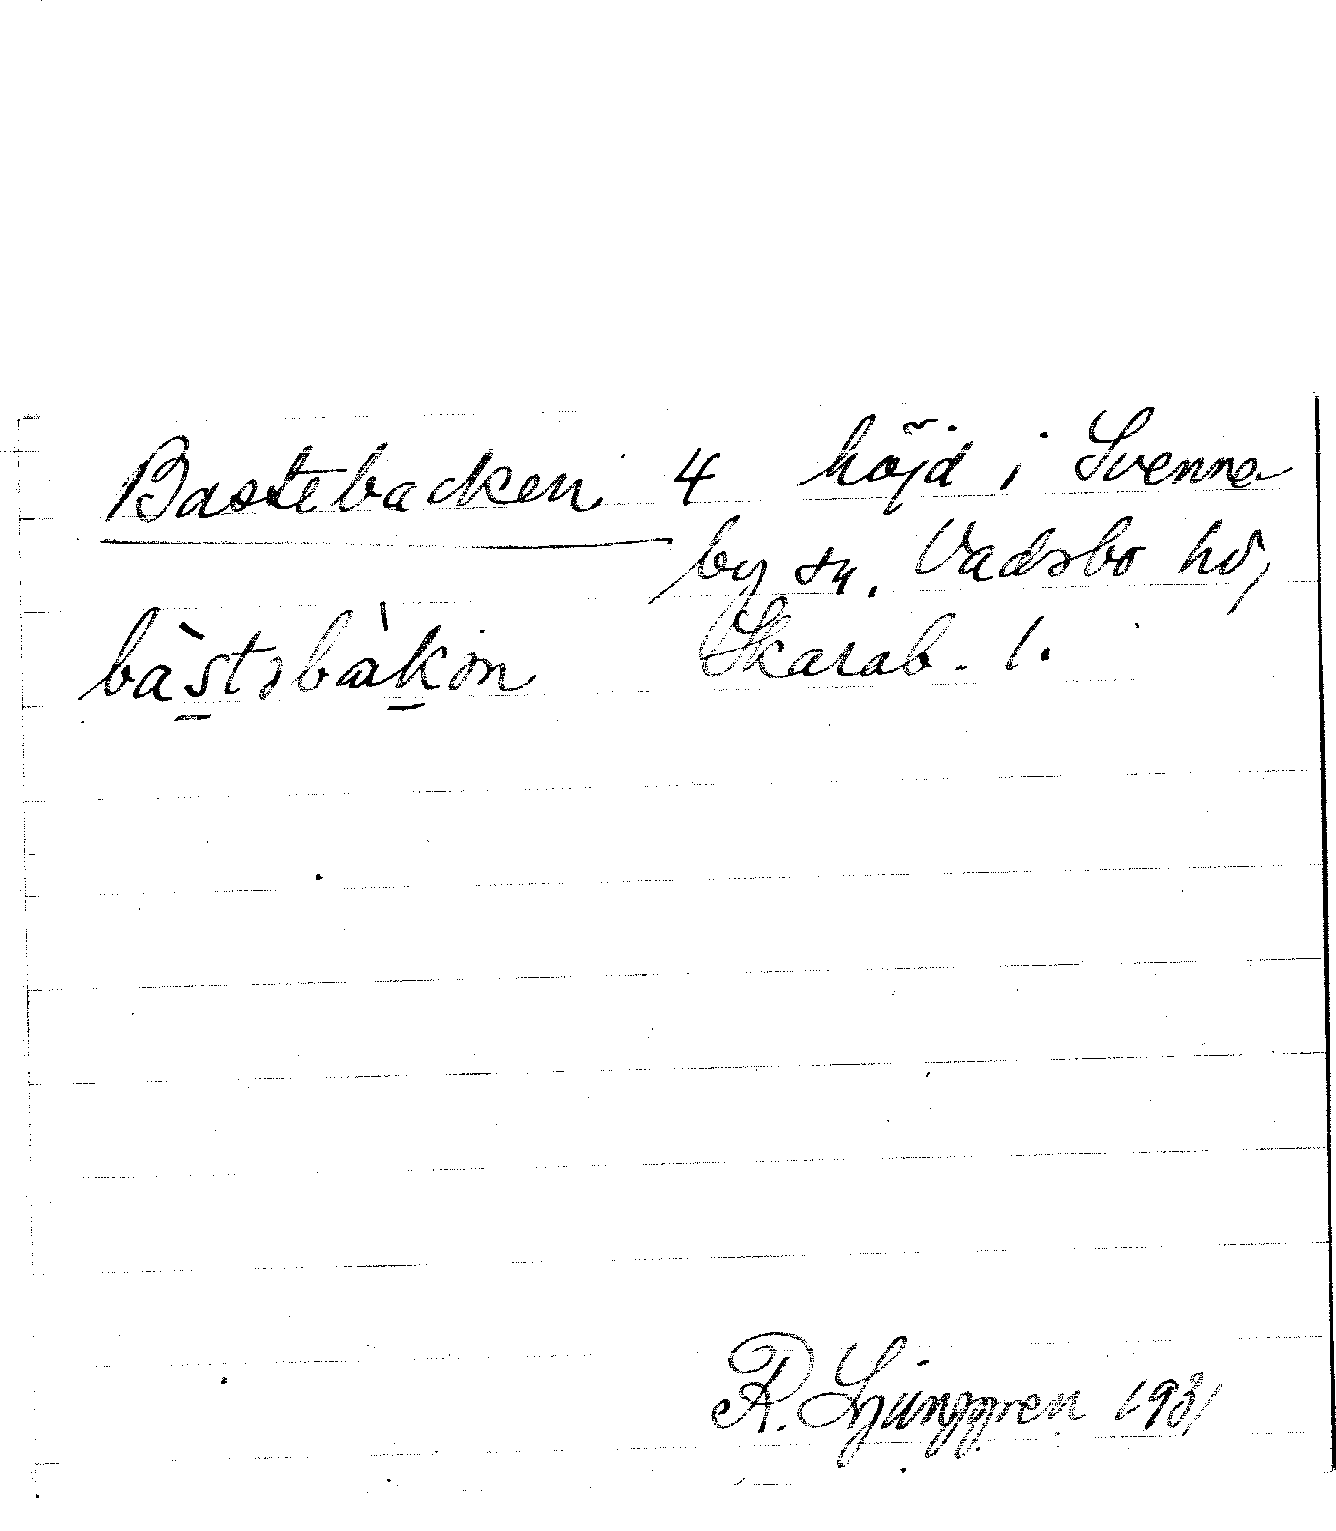 Bastebacken 4 höjd i Svenne
by sn. Vadsbo hd,
Skarab. l.
bàstəbàkən
R. Ljunggren 1931